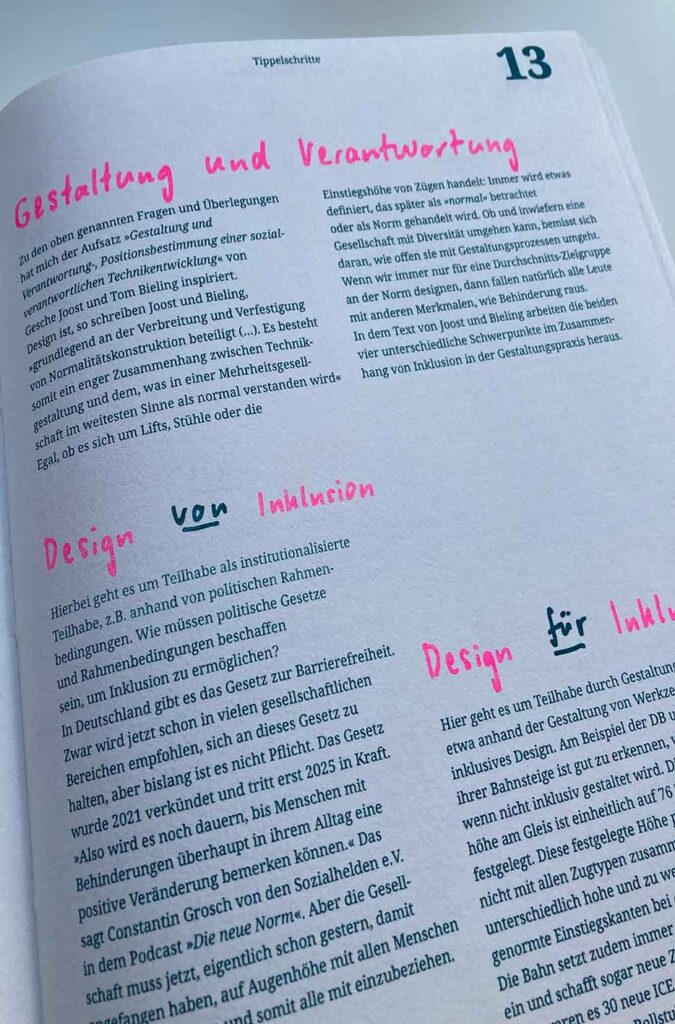 Tippelschritte
13
Gestaltung und Verantwortung
Zu den oben genannten Fragen und Überlegungen
hat mich der Aufsatz »Gestaltung und
Verantwortung-, Positionsbestimmung einer sozial-
verantwortlichen Technikentwicklung« von
Gesche Joost und Tom Bieling inspiriert.
Design ist, so schreiben Joost und Bieling,
»grundlegend an der Verbreitung und Verfestigung
von Normalitätskonstruktion beteiligt (...). Es besteht
somit ein enger Zusammenhang zwischen Technik-
gestaltung und dem, was in einer Mehrheitsgesell-
schaft im weitesten Sinne als normal verstanden wird«
Egal, ob es sich um Lifts, Stühle oder die
Einstiegshöhe von Zügen handelt: Immer wird etwas
definiert, das später als »normal« betrachtet
oder als Norm gehandelt wird. Ob und inwiefern eine
Gesellschaft mit Diversität umgehen kann, bemisst sich
daran, wie offen sie mit Gestaltungsprozessen umgeht.
Wenn wir immer nur für eine Durchschnitts-Zielgruppe
an der Norm designen, dann fallen natürlich alle Leute
mit anderen Merkmalen, wie Behinderung raus.
In dem Text von Joost und Bieling arbeiten die beiden
vier unterschiedliche Schwerpunkte im Zusammen-
hang von Inklusion in der Gestaltungspraxis heraus.
Design von Inklusion
Hierbei geht es um Teilhabe als institutionalisierte
Teilhabe, z.B. anhand von politischen Rahmen-
bedingungen. Wie müssen politische Gesetze
und Rahmenbedingungen beschaffen
sein, um Inklusion zu ermöglichen?
In Deutschland gibt es das Gesetz zur Barrierefreiheit.
Zwar wird jetzt schon in vielen gesellschaftlichen
Bereichen empfohlen, sich an dieses Gesetz zu
halten, aber bislang ist es nicht Pflicht. Das Gesetz
wurde 2021 verkündet und tritt erst 2025 in Kraft.
»Also wird es noch dauern, bis Menschen mit
Behinderungen überhaupt in ihrem Alltag eine
positive Veränderung bemerken können.« Das
sagt Constantin Grosch von den Sozialhelden e.V.
in dem Podcast »Die neue Norm«. Aber die Gesell-
schaft muss jetzt, eigentlich schon gestern, damit
angefangen haben, auf Augenhöhe mit allen Menschen
und somit alle mit einzubeziehen.
Design für Inklu
Hier geht es um Teilhabe durch Gestaltun
etwa anhand der Gestaltung von Werkze
inklusives Design. Am Beispiel der DB u
ihrer Bahnsteige ist gut zu erkennen,
wenn nicht inklusiv gestaltet wird. Di
höhe am Gleis ist einheitlich auf 76
festgelegt. Diese festgelegte Höhe
nicht mit allen Zugtypen zusamm
unterschiedlich hohe und zu we
genormte Einstiegskanten bei
Die Bahn setzt zudem immer
ein und schafft sogar neue Z
es 30 neue ICE